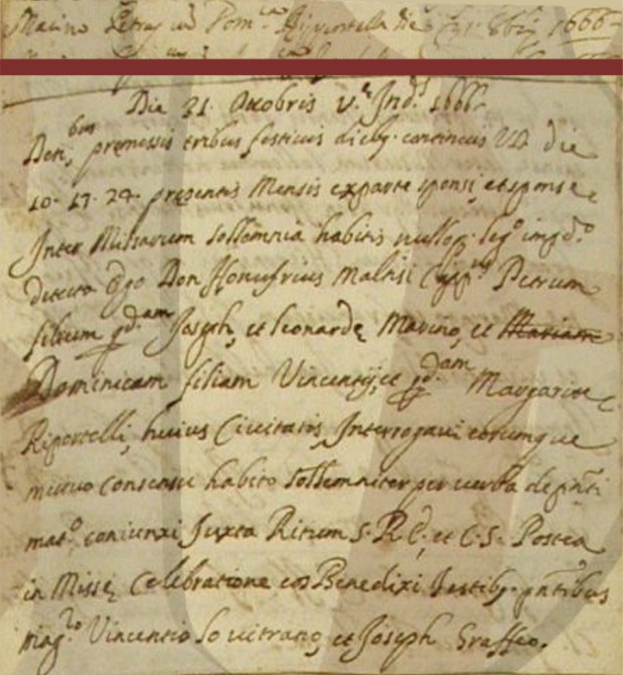 Marino Petrus cum Dom.ca Riportella die 31 8bris 1666
Die 31 Octobris V.e Ind.s 1666
Deni.bus premissis tribus festivis dieb9 continuis VD die
10. 17. 24. presentis Mensis ex parte sponsi, et sponse
Inter Missarum sollemnia habitis nulloq. leg.o imp.to
detecto Ego Don Honufrius Malisi Petrum
filium q.dam Joseph, et Leonardę Marino, et Mariam
Dominicam filiam Vincentij, et q.dam Margarite
Riportelli, huius Civitatis, Interrogavi eorumque
mutuo consensu habito sollemniter per verba de pnti
mat.o coniunxi Juxta Ritum S. R. E. et C. S. Postea
in Missę Celebratione eos Benedixi testib9 pntibus
mag.ro Vincentio Lo vitrano, et Joseph Graffeo.